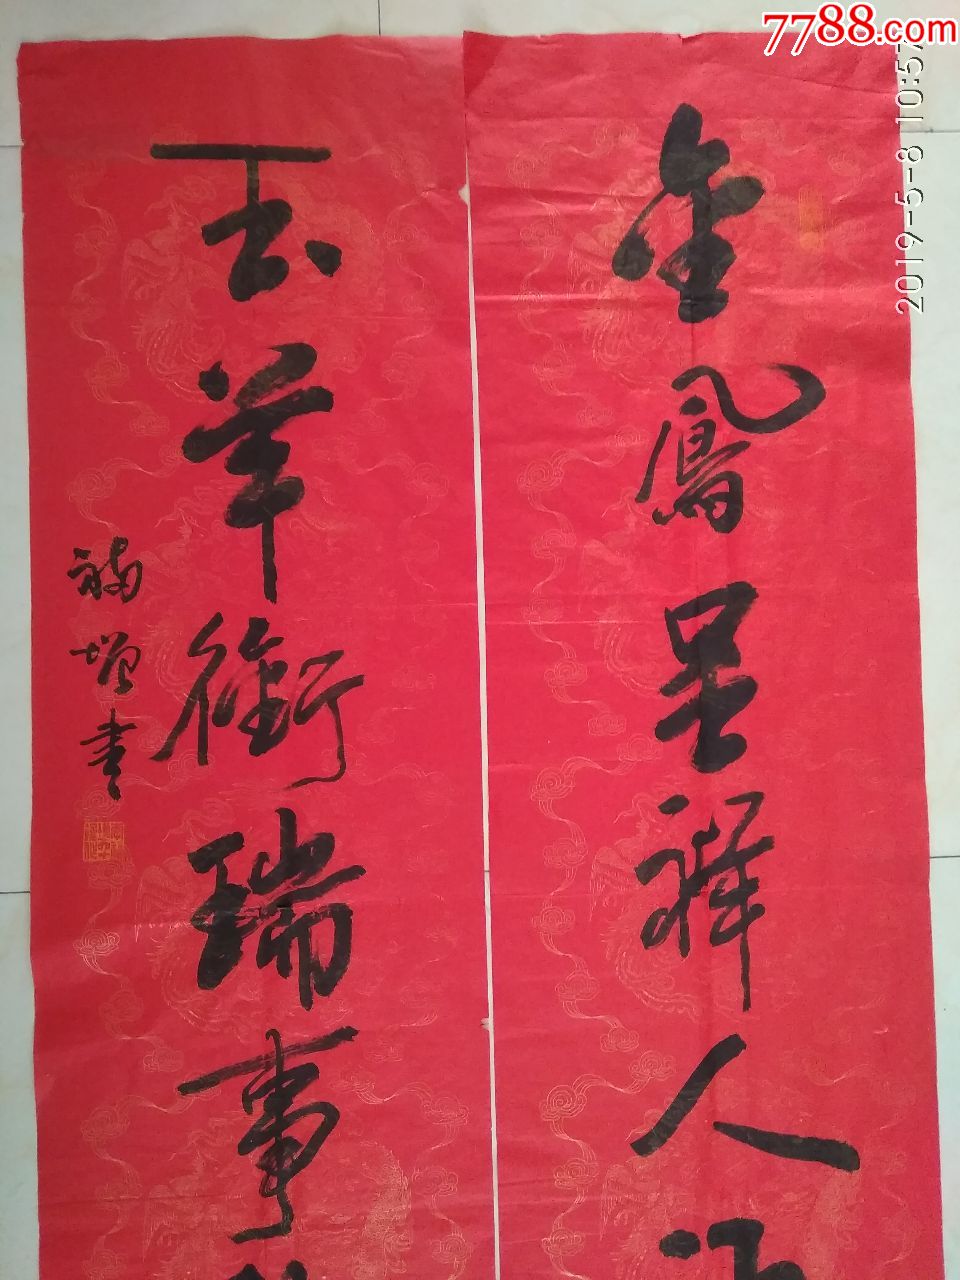 7788.com
2019-5-8 10:57
金鳳呈祥人
玉羊銜瑞事
福增書